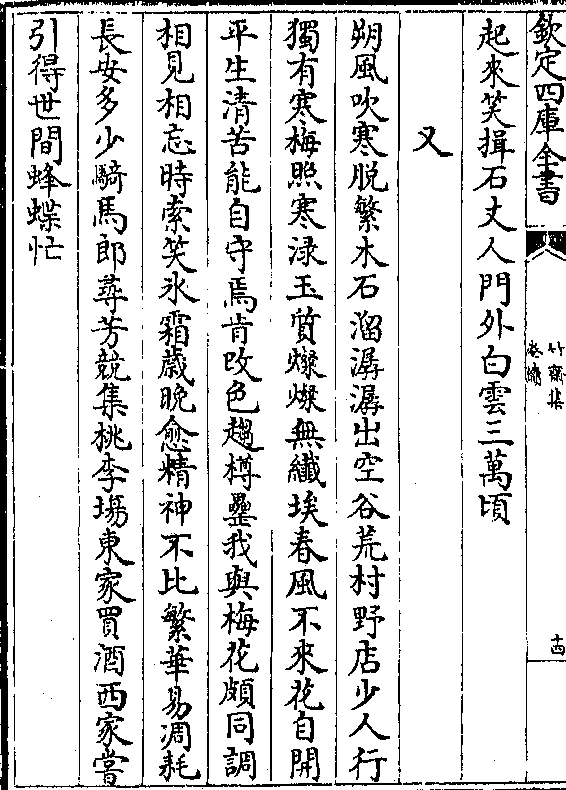 欽定四庫全書
竹齋集
卷續
十四
起來笑揖石丈人門外白雲三萬頃
又
朔風吹寒脱繁木石溜潺潺出空谷荒村野店少人行
獨有寒梅照寒渌玉質燦燦無纖埃春風不來花自開
平生清苦能自守焉肯改色趨樽罍我與梅花頗同調
相見相忘時索笑氷霜歳晚愈精神不比繁華易凋耗
長安多少騎馬郎尋芳競集桃李塲東家買酒西家嘗
引得世間蜂蝶忙